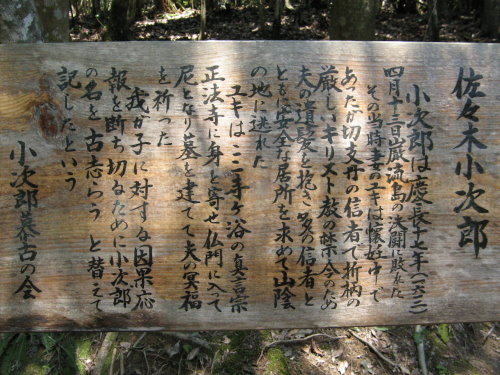 佐々木小次郎
小次郎は慶長十七年（一六一二）
四月十三日巌流島の決闘に敗れた
その当時妻のユキは懐妊中で
あったが切支丹の信者で折柄の
厳しいキリスト教の禁令のため
夫の遺髪を抱き多くの信者と
ともに安全な居所を求めて山陰
の地に逃れた
ユキはここ寺ヶ浴の真言宗
正法寺に身を寄せ仏門に入って
尼となり墓を建てて夫の冥福
を祈った
我が子に対する因果応
報を断ち切るために小次郎
の名を古志らうと替えて
記したという
小次郎墓古の会